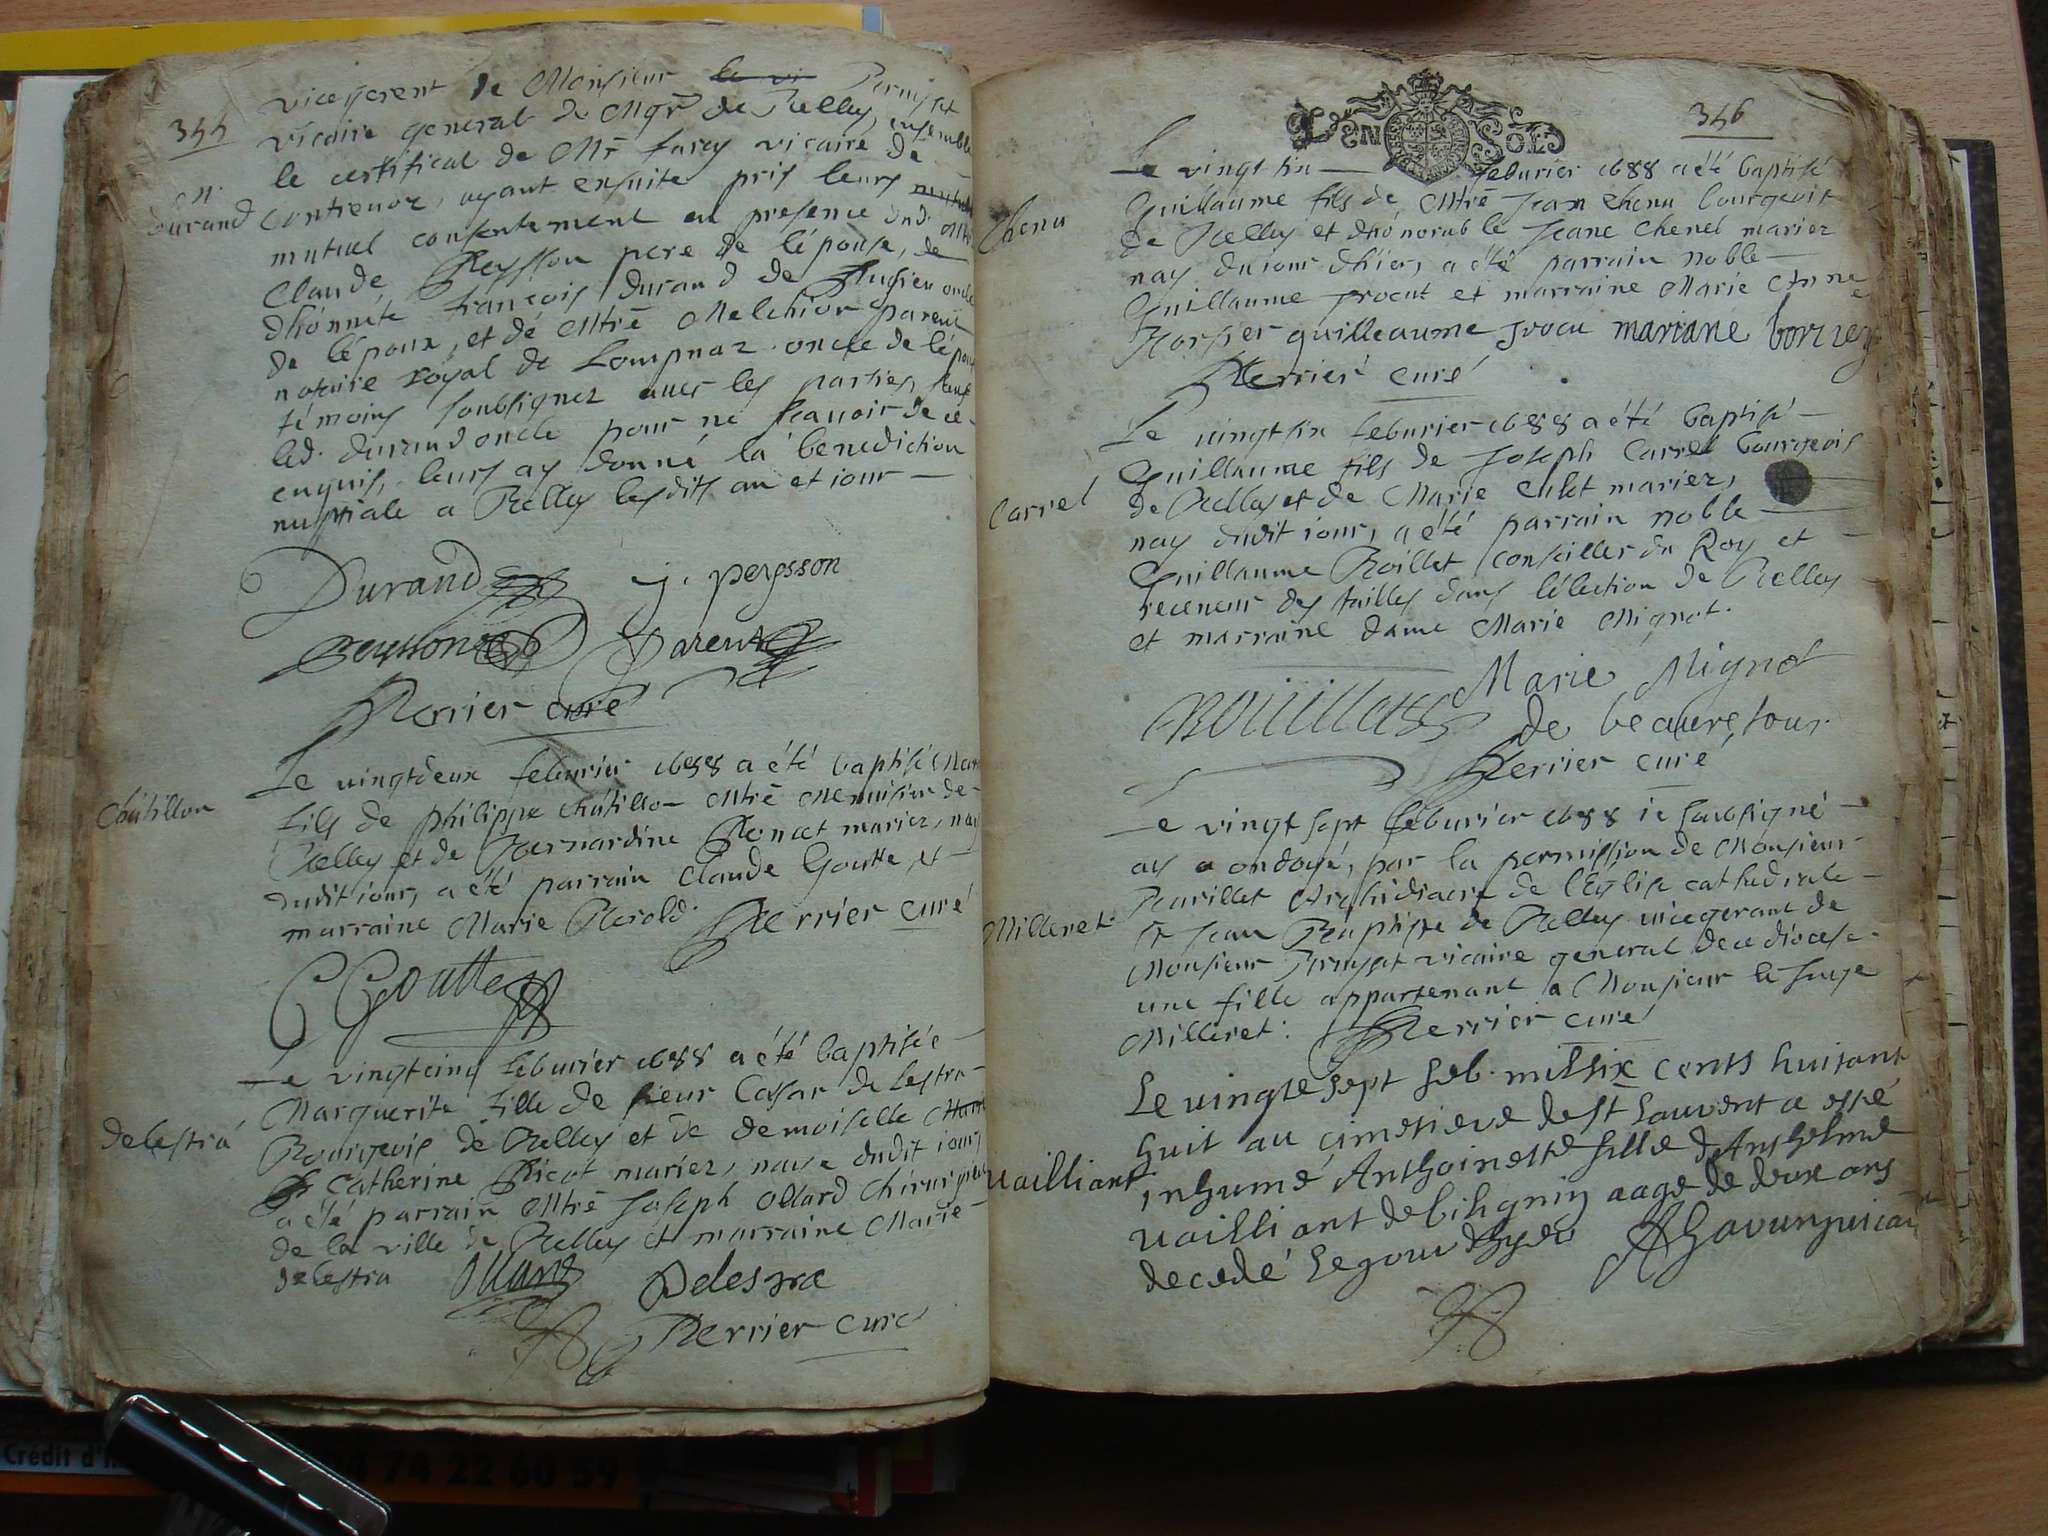 355
vicegerent de Monsieur le vi Perrisset
vicaire general de Mgr de Belley, ensemble
le certificat de Mre farcy vicaire de
m.
durand
Contrevoz, ayant ensuite pris leurs mutuel
mutuel consentement en presence dud. Mre
Claude Peysson pere de lépouse, de
dhonnête françois durand de Pugieu oncle
de lépoux, et de Mtre Melchior parent
notaire royal de Lompnaz oncle de lépouse
témoins soubsignez avec les parties, sauf
led. durand oncle pour ne scavoir de ce
enquis, leurs ay donné la benediction
nuptiale a Belley lesdits an et iour
Durand j. peysson
Peysson Parent
Perrier curé
Châtillon
Le vingtdeux feburier 1688 a été baptisé
fils de philippe Châtillon Mtre Menuisier de
Belley et de Bernardine Poncet mariez, nay
dudit iour, a été parrain Claude Goutte, et
marraine Marie Perold. Perrier curé
C Goutte
Le vingtcinq feburier 1688 a été baptisée
Marguerite fille de sieur Cæsar de Lestra
delestra
Bourgeois de Belley et de demoiselle
Catherine Picot mariez, naye dudit iour,
a été parrain Mtre Joseph Ollard Chirurgien
de la ville de Belley et marraine Marie
delestra Ollard Delestra
Perrier curé
GEN SOLS
356
Le vingt six feburier 1688 a été baptisé
Chenu
Guillaume fils de Mtre Jean Chenu bourgeois
de Belley et dhonorable Jeane Chenel mariez
nay du iour dhier, a été parrain noble
Guillaume procut et marraine Marie Anne
Borsier guilleaume procu mariane
Perrier curé
Le vingtsix feburier 1688 a été baptisé
Guillaume fils de Joseph Carrel bourgeois
Carrel
de Belley et de Marie mariez,
nay dudit iour, a été parrain noble
Guillaume Roillet Conseiller du Roy et
receveur des tailles dans lélection de Belley
et marraine dame Marie Mignot.
Marie Mignot
de beauretour
Perrier curé
Le vingt sept feburier 1688 ie soubsigné
ay ondoyé, par la permission de Monsieur
Archidiacre de l'Eglise cathedrale
Milleret
St Jean Baptiste de Belley vicegerant de
Monsieur Perrisset vicaire general de ce diocese
une fille appartenant a Monsieur le Juge
Milleret: Perrier curé
Le vingte sept feb. mil six cents huitant
huit au cimetiere de St Lauvent a esté
Vailliant
inhumé Anthoinette fille d'Anthelme
vailliant de bihgnin aage de deux ans
decedé le jour dhyer
Crédit d'
4 74 22 60 59